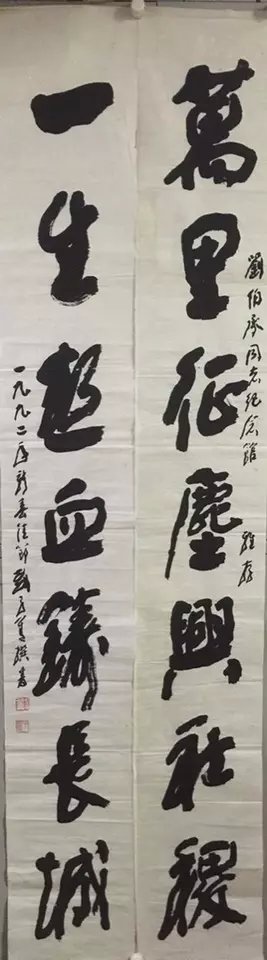 萬里征塵興社稷
劉伯承同志紀念館 雅存
一生熱血鑄長城
一九九二年新春佳節 撰書